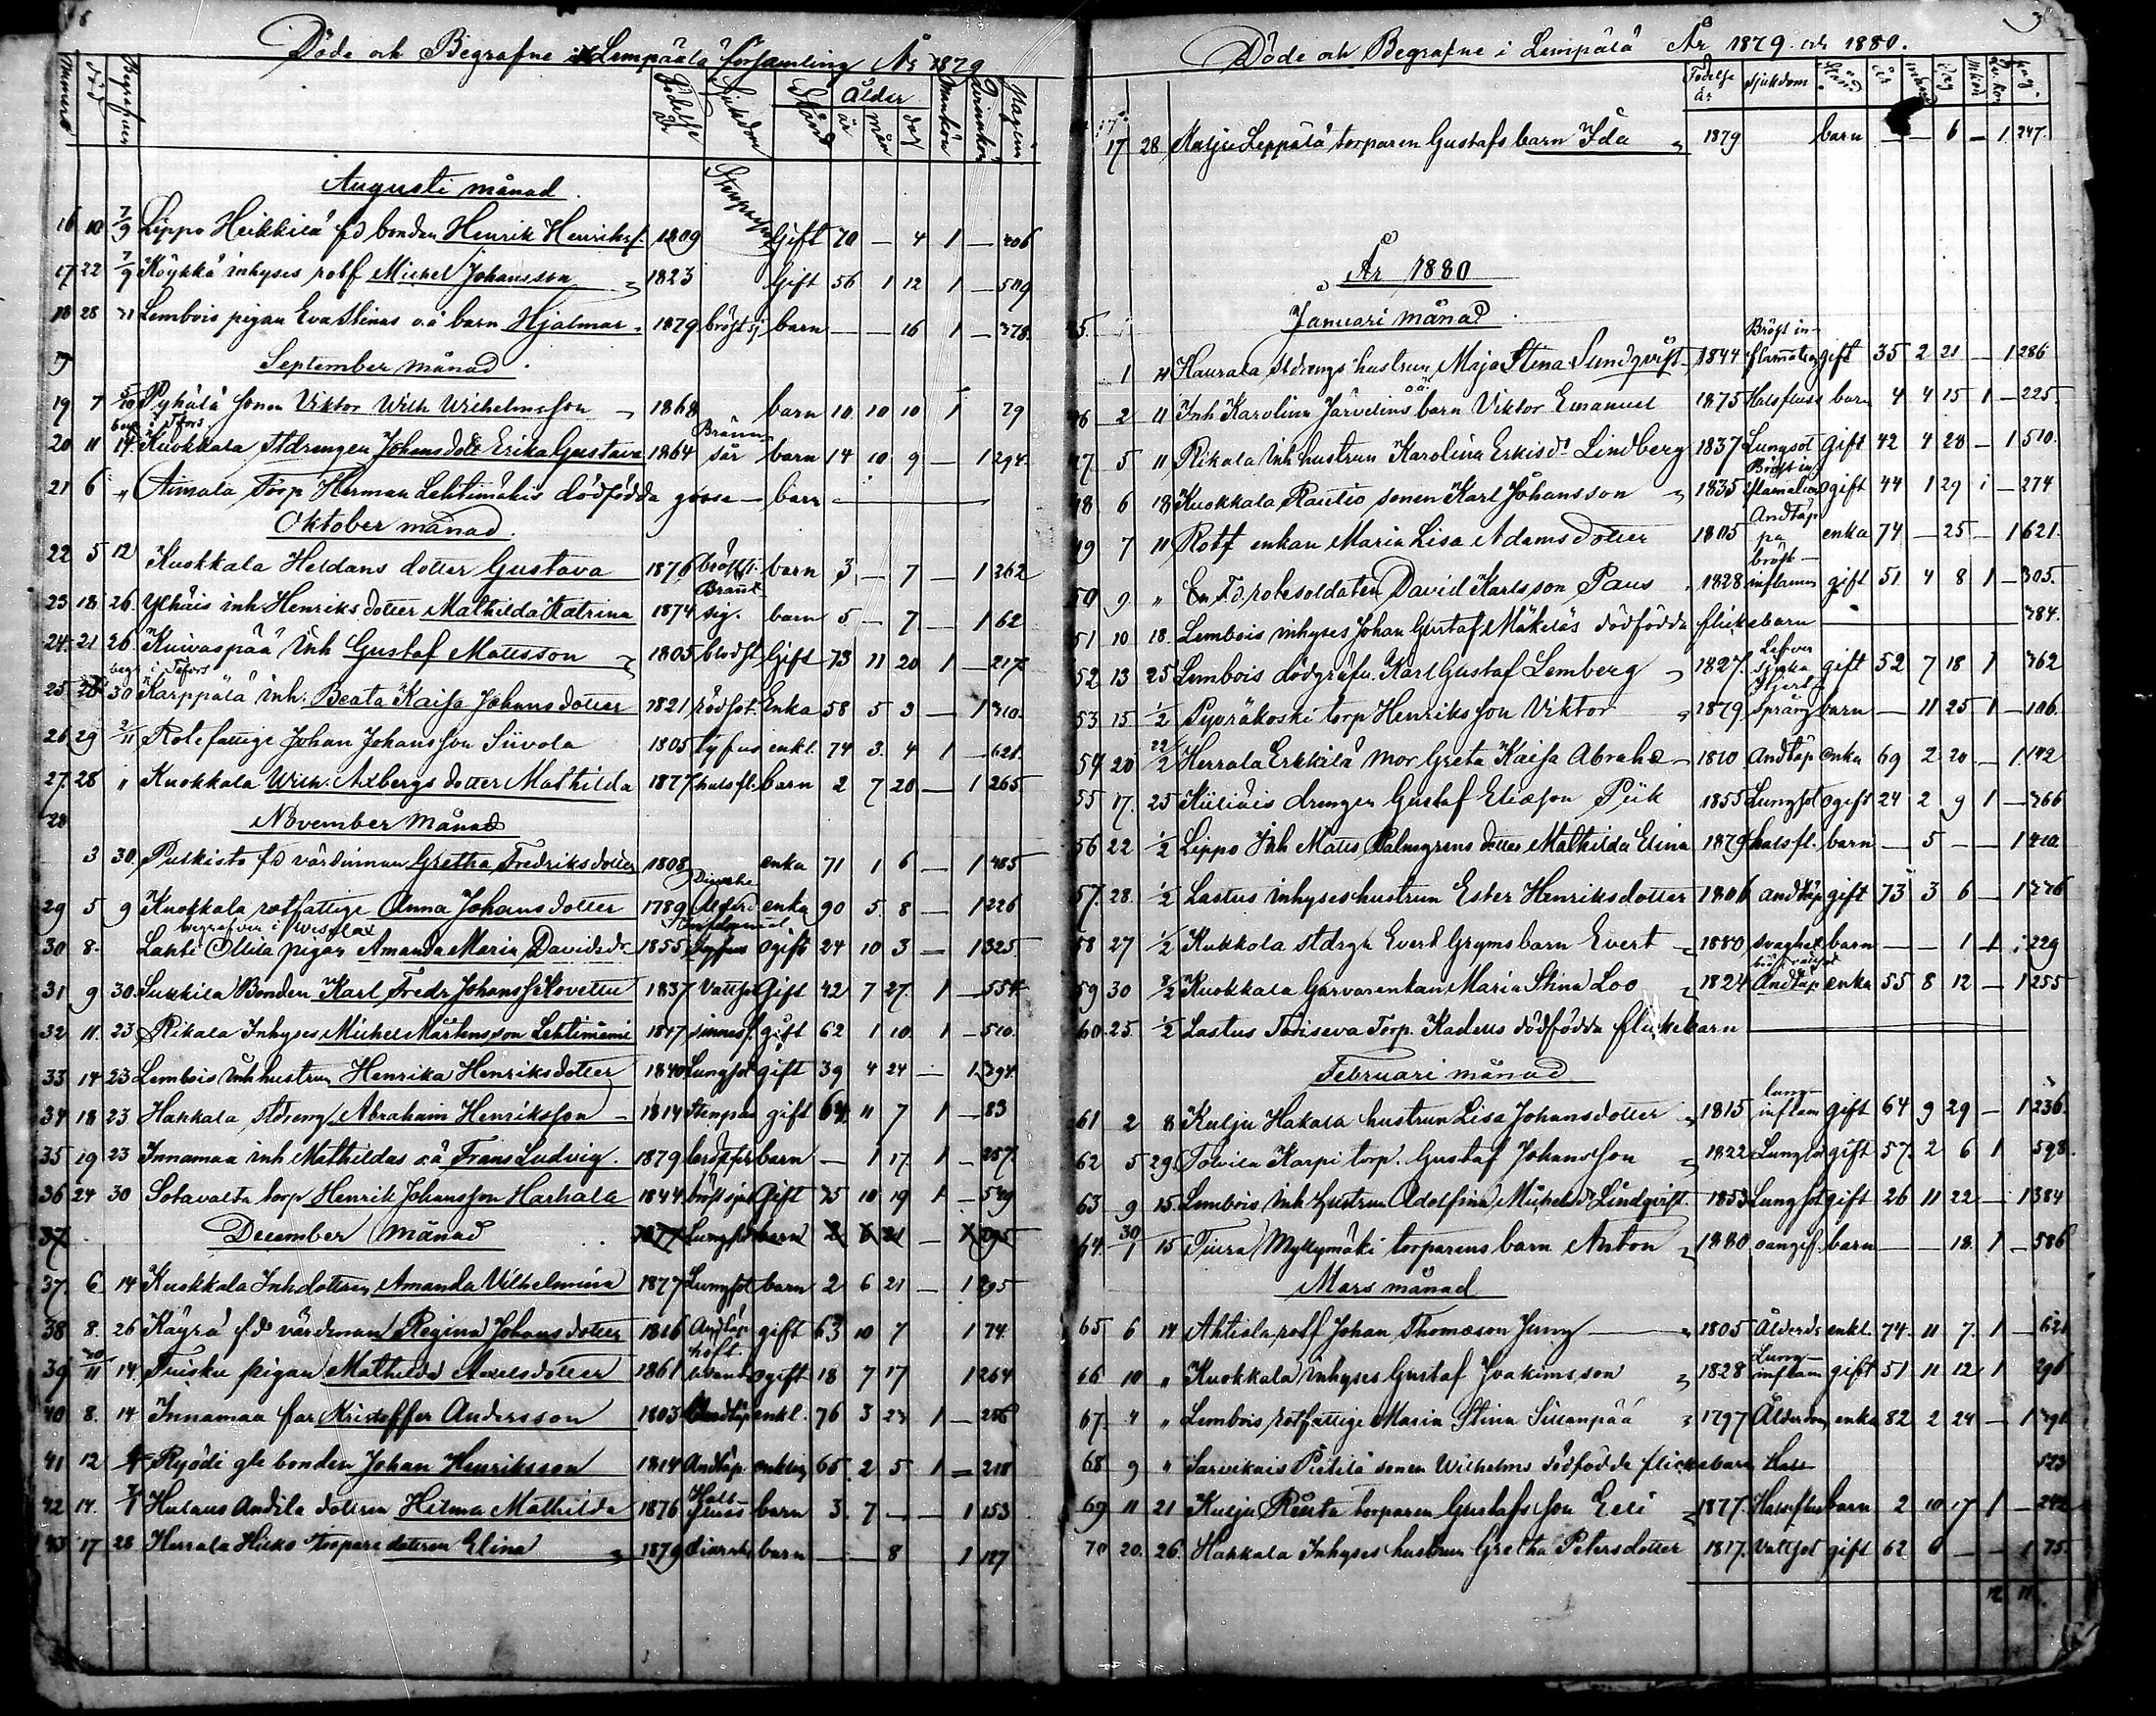 Döde och Begrafne i Lempäälä församling År 1879
Numero Död Begrafne Födelse år Sjukdom Stånd Ålder år mån dag Mankön Qvinnkön Pagina
Augusti månad.
16 10 7/9 Lippo Heikkilä fd bonden Henrik Henriksf. 1809 Gift 70 — 4 1 — 406
17 22 7/9 Köykkä inhyses rotf Michel Johansson 1823 Gift 56 1 12 1 — 509
18 28 Lembois pigan Eva Stinas oä barn Hjalmar 1879 bröstsj barn — — 16 1 — 378.
September månad.
19 7 5/10 Pyhälä sonen Viktor Wilh Wilhelmsson 1868 barn 10 10 10 1 79
20 11 14 Kuokkala Stdrengen Johans dott Erika Gustava 1864 Brännsår barn 14 10 9 — 1 294
21 6 " Aimala Torp Herman Lehtimäkis dödfödda gosse — barn
Oktober månad.
22 5 12 Kuokkala Heldans dotter Gustava 1876 bröstsj. barn 3 — 7 — 1 262
23 18 26. Ylhäis inh Henriks dotter Mathilda Katrina 1874 barn 5 — 7 — 1 62
24. 21 26 Kuivaspää Inh Gustaf Mattsson 1805 blodst Gift 73 11 20 1 — 217
25 28 30 Karppälä inh. Beata Kaisa Johansdotter 1821 rödsot. Enka 58 5 3 — 1 310.
26 29 2/11 Rotefattige Johan Johansson Siivola 1805 tyfus enkl. 74 3. 4 1 — 621
27. 28 " Kuokkala Wilh. Axbergs dotter Mathilda 1877 halsfl. barn 2 7 20 — 1 265
28 November månad
3 30. Pulkisto fd värdinnan Gretha Fredriksdotter 1808 enka 71 1 6 — 1 485
29 5 9 Kuokkala rotfattige Anna Johansdotter 1789 enka 90 5. 8 — 1 226
begrafven i
30 8. Lahti Ollila pigan Amanda Maria Davidsdr 1855 ogift 24 10 3 — 1 325
31 9 30. Sukkila Bonden Karl Fredr Johansf 1837 Vattsot Gift 42 7 27. 1 — 554
32 11. 23 Rikala Inhyses Michel Mårtensson Lehtiniemi 1817 sinnesf. gift 62 1 10. 1 — 510.
33 14 23 Lembois inh hustrun Henrika Henriksdotter 1840 Lungsot gift 39 4 24 — 1 394.
34 18 23 Hakkala stdreng Abraham Henriksson 1814 gift 64 11 7 1 — 83
35 19 23 Innamaa inh Mathildas oä Frans Ludvig. 1879 barn — 1 17. 1 — 287.
36 24 30 Sotavalta torp Henrik Johansson Harhala 1844. bröstsjuk Gift 35 10 19 1 — 549
37 December månad 1877 Lungsot barn 2 6 21 — 1 295
37 6 14 Kuokkala Inh dottren Amanda Vilhelmina 1877 Lungsot barn 2 6 21 — 1 295
38 8. 26 Käyrä fd värdinnan Regina Johansdotter 1816 Andtäp gift 63 10 7 1 74.
39 30/11 14 Tuisku pigan Mathilda Axelsdotter 1861 ogift 18 7 17 1 264
40 8. 14 Innamaa far Kristoffer Andersson 1803 Andtäp enkl. 76 3 23 1 — 286
41 12 Ryödi gle bonden Johan Henriksson 1814 Andtäp. enkling 65. 2 5 1 — 218
42 14. 7/1 Hulaus Andila dottren Hilma Mathilda 1876 Halsfluss barn 3. 7 — — 1 153
43 17 28 Herrala Hieko torpare dotren Elina 1879 diarrhe barn — — 8 1 127
Döde och Begrafne i Lempälä År 1879 och 1880.
Födelse år sjukdom Stånd år mån dag Mkön Qv. kön pag.
17 28 Kulju Leppälä torparen Gustafs barn Ida 1879 barn — — 6 — 1. 247.
År 1880
Januari månad.
45.
1 11 Haurala stdrengs hustrun Maja Stina Sundqvist 1844 Bröst inflamation gift 35 2 21 — 1 286
46 2 11 Inh Karolina Järvelins oä. barn Viktor Emanuel 1875 Halsfluss barn 4 4 15 1 — 225.
47 5 11 Rikala Inh hustrun Karolina Eriksd. Lindberg 1837 Lungsot Gift 42 4 28 — 1 510.
48 6 18 Kuokkala Rautio sonen Karl Johansson 1835 Bröst inflamation Ogift 44 1 29 1 — 274
49 7 11 Rotf enkan Maria Lisa Adamsdotter 1805 Andtäppa enka 74 — 25 — 1 621.
50 9 " En F.d. rotesoldaten David Karlsson Paus 1828 bröst-inflamm gift 51 4 8 1 — 305.
51 10 18. Lembois inhyses Johan Gustaf Mäkeläs dödfödda flickebarn 384.
52 13 25 Lembois dödgräfv. Karl Gustaf Lemberg 1827. Lefversjuka gift 52 7 18 1 362
53 15 1/2 Pyöräkoski torp Henriks son Viktor 1879 Hjertsprång barn — 11 25 1 — 106.
54 20 22/2 Herrala Erkkilä mor Greta Kaisa Abrahs 1810. Andtäp. enka 69 2 20 — 1. 142
55 17. 25 Kiiliäis drengen Gustaf Eliasson Piik 1855 Lungsot ogift 24 2 9 1 — 366
56 22 1/2 Lippo Inh Matts Palmgrens dotter Mathilda Elina 1879 halsfl. barn — 5 — — 1 420.
57. 28. 1/2 Lastus inhyseshustrun Ester Henriksdotter 1806 andtäp gift 73 3 6 — 1 336
58 27 1/2 Kukkola stdrgn Evert Gryms barn Evert 1880 svaghet barn — — 1 1 229
59 30 8/2 Kuokkala Garvarenkan Maria Stina Loo 1824 Andtäp enka 55 8 12 — 1 255
60. 25. 1/2 Lastus Toiseva Torp. Kadeus dödfödda flickebarn
Februari månad
61 2 8 Kulju Hakala hustrun Lisa Johansdotter 1815 lung-inflam gift 64 9 29 — 1 236.
62 5 29. Tolvila Karpi torp. Gustaf Johansson 1822 Lungsot gift 57. 2 6 1 598.
63 9 15. Lembois Inh hustrun Adolfina Michelsdr Lindqvist. 1853 Lungsot gift 26 11 22 — 1 384
64. 30/1 15 Tiura Myllymäki torparens barn Anton 1880 oangif. barn — — 18. 1 — 586
Mars månad
65 6 14. Ahtiala rotf Johan Thomasson Jung 1805 Ålderds enkl. 74. 11 7. 1 — 621
66 10 " Kuokkala inhyses Gustaf Joakimsson 1828 Lung-inflam gift 51 11 12 1 296
67. 4 " Lembois rotfattige Maria Stina Sillanpää 1797 Ålderdom enka 82 2 24 — 1 391.
68 9 " Sarvikais Pietilä sonen Wilhelms dödfödda flickebarn 523
69 11 21 Kulju Rauta torparen Gustafs son Eeli 1877. Halsfluss barn 2 10 17 1 — 242
70 20. 26. Hakkala Inhyses hustrun Gretha Petersdotter 1817. Vattsot gift 62 6 — — 1 75.
12 11.